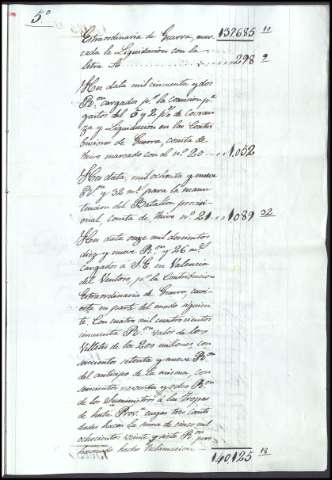 5º
Extraordinaria de Guerra, mar- 137685 11
cada la Liquidacion con la
letra A 298 9
Han data mil cincuenta y dos
Rˢ cargados pʳ la comision pʳ
gastos del 5 y 2 pʳ% de Cobran-
za y Liquidacion en las Contri-
buciones de Guerra, consta de
thivo marcado con el nº 20 1052
Han data, mil ochenta y nueve
Rˢ y 32 mˢ para la manu-
tencion del Batallon provisi-
onal, consta de thivo nº 21 1089 32
Han data once mil doscientos
diez y nueve Rˢ y 26 mˢ
cargados á S.E. en Valencia
del Ventoso, pʳ la Contribucion
Extraordinaria de Guerra, cuvi-
erta en parte del modo siguien-
te. Con cuatro mil cuatrocientos
cincuenta Rˢ valor de los
Villetes de los 200 millones, con
novecientos setenta y nueve Rˢ
del anticipo de la misma, con
trescientos noventa y dos Rˢ
de los Suministros á las Tropas
de hasta Prov. cuyas tres canti-
dades hacen la suma de cinco mil
ochocientos veinte y siete Rˢ
140125 18